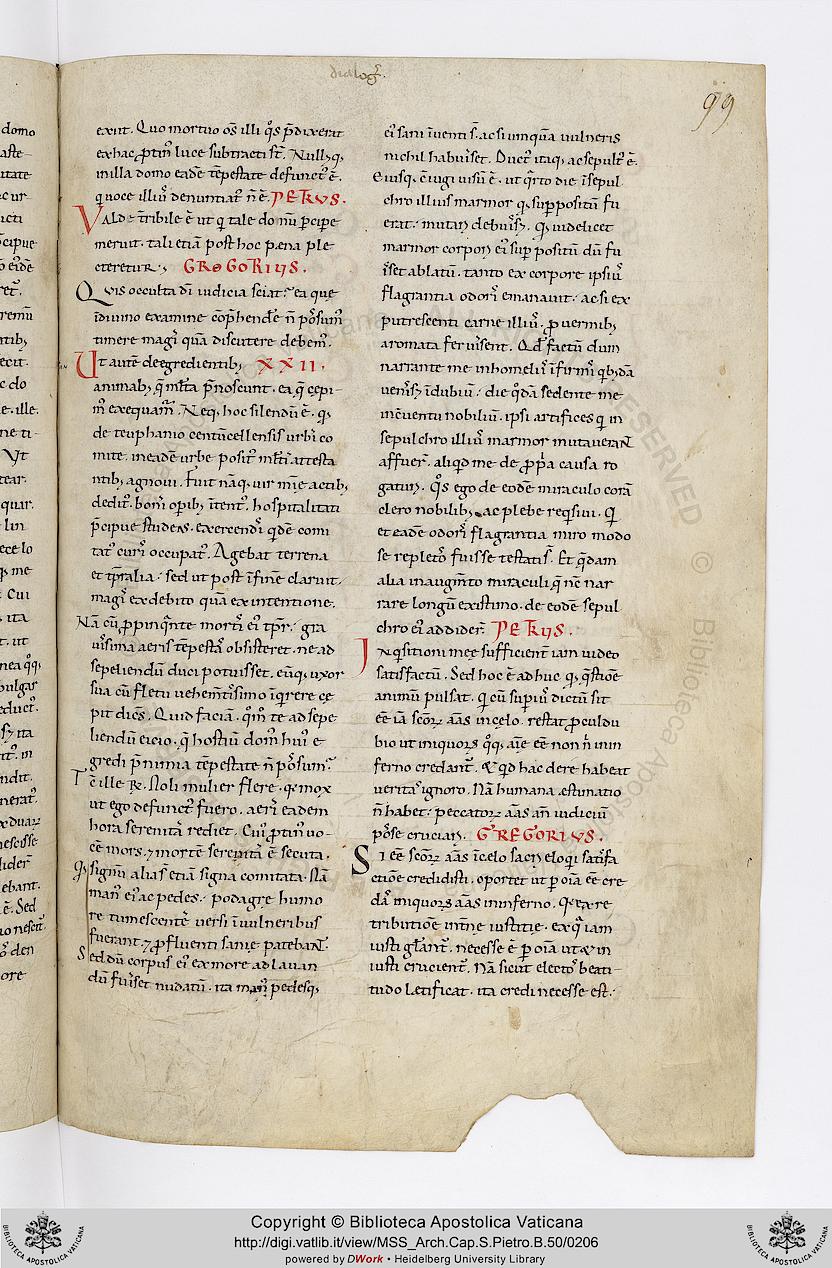 dialog̃.
99
exiit. Quo mortuo oṁs illi q̊s p̄dixerat
ex hac ꝓtin᷒ luce subtracti s̄t. Null᷒q;
in illa domo eadē tēpestate defunct᷒ ē.
q̇ uoce illi᷒ denuntiat᷒ n̄ ē. PETRVS.
Valde tribile ē ut q̇ tale domū pcipe
meruit. tali etiā post hoc pęna ple
cteretur; GREGORIUS.
Quis occulta dī iudicia sciat? ea que
ī diuino examine cōp̄hendře n̄ pōsum᷒
timere magi᷒ quā discutere debem᷒.
Ut autē de egredientib; XXII.
animab; q̨ ml̃ta p̄noscunt. ea q̨ cępi-
m᷒ exequam᷒. Neq; hoc silendū ē. q;
de teuphanio centūcellensis urbi᷒ co
mite. in eadē urbe posit᷒ ml̃ti᷒ attesta
ntib; agnoui. Fuit nāq; uir mie actib;
dedit᷒. boni᷒ opib; ītent᷒. hospitalitati
p̄cipue studens. exercendi᷒ q̇dē comi
tat᷒ curi᷒ occupat᷒. Agebat terrena
et tp̄ralia. sed ut post ī fine claruit.
magi᷒ ex debito quā ex intentione.
Nā cū ꝓpinq̊nte morti᷒ ei᷒ tp̄r. gra
uissima aeris tēpesta᷒ obsisteret. ne ad
sepeliendū duci potuisset. eūq; uxor
sua cū fletu uehem̄tissimo īq̇rere cę
pit dicēs. Quid faciā. q̊m̄ te ad sepe
liendū eicio. q̨ hostiū dom᷒ hui᷒ e
gredi p̄ nimia tēpestate n̄ pōsum?
Tc̄ ille R̃. Noli mulier flere. q; mox
ut ego defunct᷒ fuero. aeri᷒ eadem
hora serenita᷒ rediet. Cui᷒ ꝓtin᷒ uo-
cē mors. ⁊ mortē serenita᷒ ē secuta.
Q; signū alias etiā signa comitata. Nā
man᷒ ei᷒ ac pedes. podagrę humo
re tumescentes uersi ī uulneribus
fuerant. ⁊ ꝓfluenti sanie patebant.
Sed dū corpus ei᷒ ex more ad lauan
dū fuisset nudatū. ita man᷒ pedesq;
ei᷒ sani īuenti s̄. ac si umquā uulneris
nichil habuisset. Duct᷒ itaq; ac sepult᷒ ē.
Eiusq; ċiugi uisū ē. ut q̊rto die ī sepul
chro illius marmor q; suppositū fu
erat. mutari debuisset. q; uidelicet
marmor corpori ei᷒ suppositū dū fu
isset ablatū. tanto ex corpore ipsi᷒
flagrantia odori᷒ emanauit. ac si ex
putrescenti carne illi᷒. ꝓ uermib;
aromata feruissent. Qd̄ factū dum
narrante me in homeliis ī firmi᷒ q̇b;dā
uenisset ī dubiū. die q̇dā sedente me
in ċuentu nobiliū. ipsi artifices q̇ in
sepulchro illi᷒ marmor mutauerant
affuer̄. aliq̇d me de ꝓp̄a causa ro
gaturi. q̊s ego de eodē miraculo corā
clero nobilib; ac plebe req̇siui. Q̇
et eadē odori᷒ flagrantia miro modo
se repleto᷒ fuisse testati s̄. Et q̨dam
alia in augm̄to miraculi q̨ nc̄ nar
rare longū existimo. de eodē sepul
chro ei᷒ addider̄. PETRUS.
Inq̇sitioni meę sufficient᷒ iam uideo
satisfactū. Sed hoc ē adhuc q; q̨stione
animū pulsat. Q̇ cū superi᷒ dictū sit
eē iā scōrꝝ aīas in cęlo. restat ꝓculdu
bio ut iniquorꝝ q̊q; aīe eē non n̄ in in
ferno credant᷒. & q̇d hac de re habeat
ueritas ignoro. Nā humana ęstimatio
n̄ habet. peccatorꝝ aīas an̄ iudiciū
pōse cruciari. GREGORIVS.
Si eē scōrꝝ aīas ī cęlo sacri eloqui satisfa
ctiōe credidisti. oportet ut p oīa eē cre
da᷒ iniquorꝝ aīas in inferno. Q; ex re
tributiōe int̄ne iustitie. ex q̊ iam
iusti gl̄ant᷒. necesse ē p oīa ut & in
iusti crucient᷒. Nā sicut electos beati-
tudo letificat. ita credi necesse est.
Copyright © Biblioteca Apostolica Vaticana
http://digi.vatlib.it/view/MSS_Arch.Cap.S.Pietro.B.50/0206
powered by DWork • Heidelberg University Library